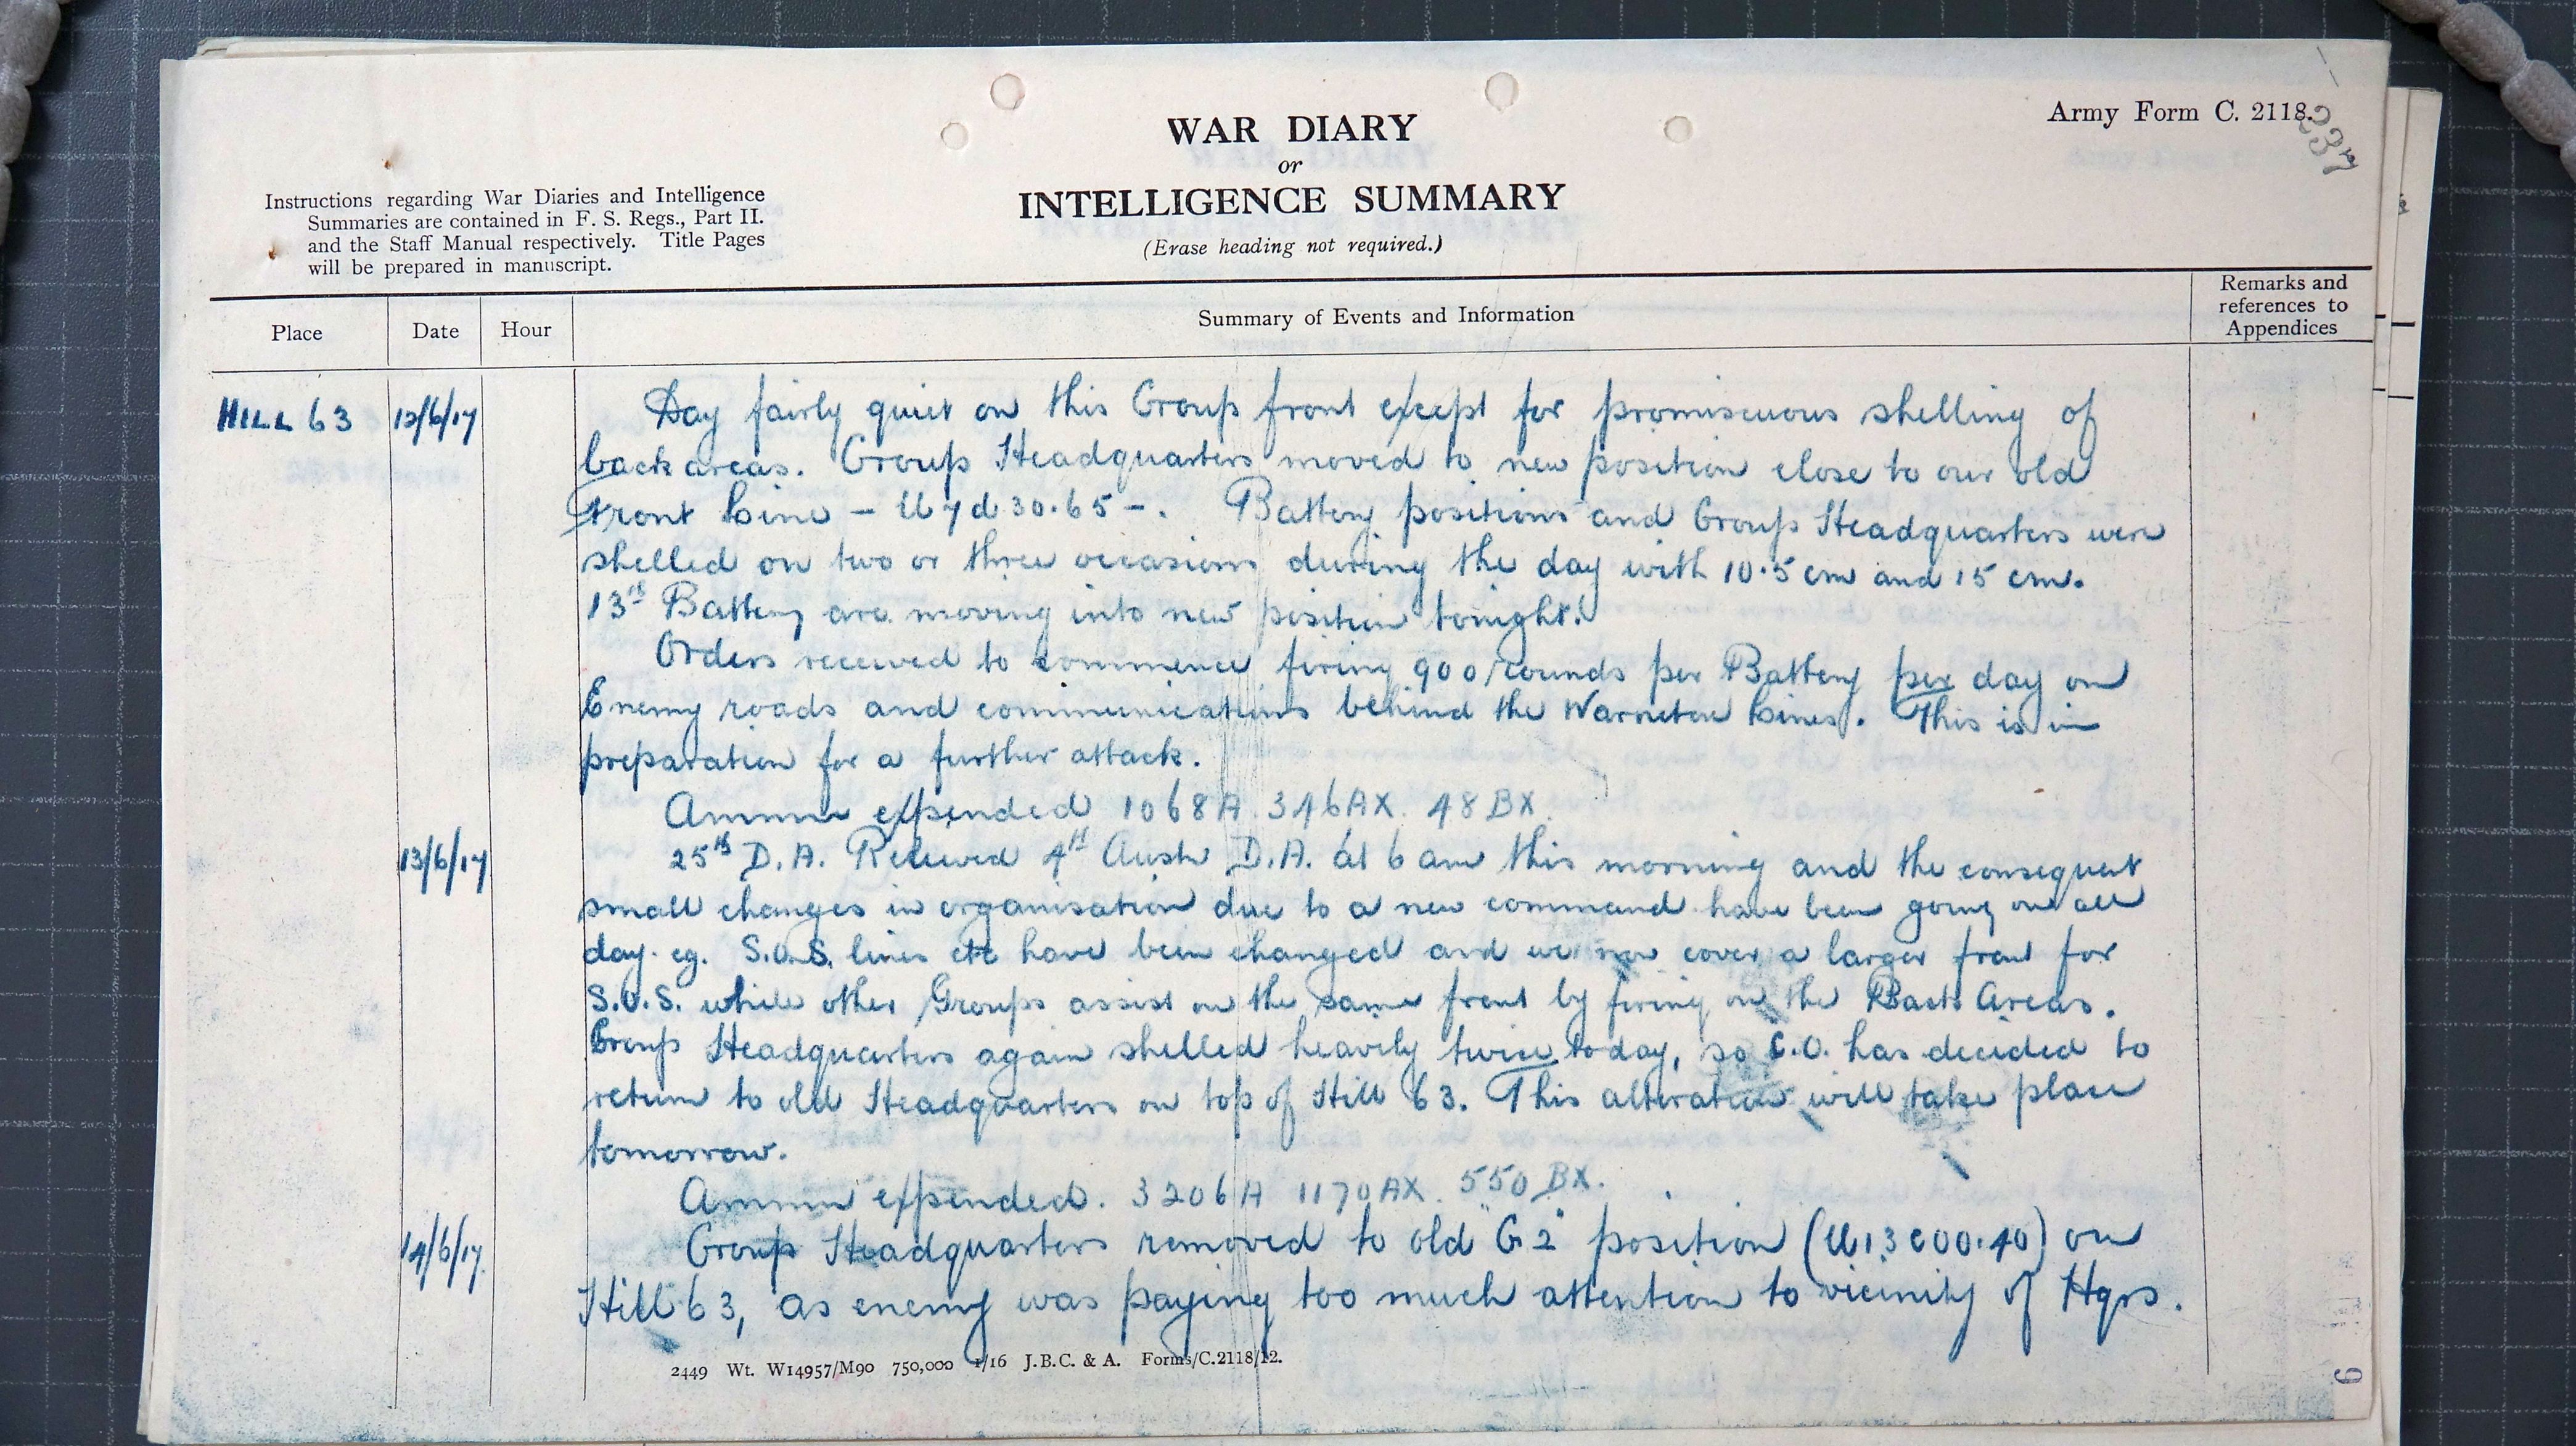 Army Form C. 2118.
237
WAR DIARY
or
INTELLIGENCE SUMMARY
(Erase heading not required.)
Instructions regarding War Diaries and Intelligence
Summaries are contained in F. S. Regs., Part II.
and the Staff Manual respectively. Title Pages
will be prepared in manuscript.
Place Date Hour Summary of Events and Information Remarks and references to Appendices
HILL 63 12/6/17 Day fairly quiet on this Group front except for promiscuous shelling of
back areas. Group Headquarters moved to new position close to our old
Front Line - U7d30.65-. Battery positions and Group Headquarters were
shelled on two or three occasions during the day with 10.5 cm and 15 cm.
13th Battery are moving into new position tonight.
Orders received to commence firing 900 rounds per Battery per day on
Enemy roads and communications behind the Warneton Lines. This is in
preparation for a further attack.
Ammn expended 1068A. 346AX. 48BX.
13/6/17 25th D.A. Relieved 4th Aust D.A. at 6 am this morning and the consequent
small changes in organisation due to a new command have been going on all
day. eg. S.O.S. lines etc have been changed and we now cover a larger front for
S.O.S. while other Groups assist on the same front by firing on the Back Areas.
Group Headquarters again shelled heavily twice today, so C.O. has decided to
return to old Headquarters on top of Hill 63. This alteration will take place
tomorrow.
Ammn expended. 3206A 1170AX. 550BX.
14/6/17. Group Headquarters removed to old "G2" position (U13c00.40) on
Hill 63, as enemy was paying too much attention to vicinity of Hqrs.
2449 Wt. W14957/M90 750,000 1/16 J.B.C. & A. Forms/C.2118/12.
9